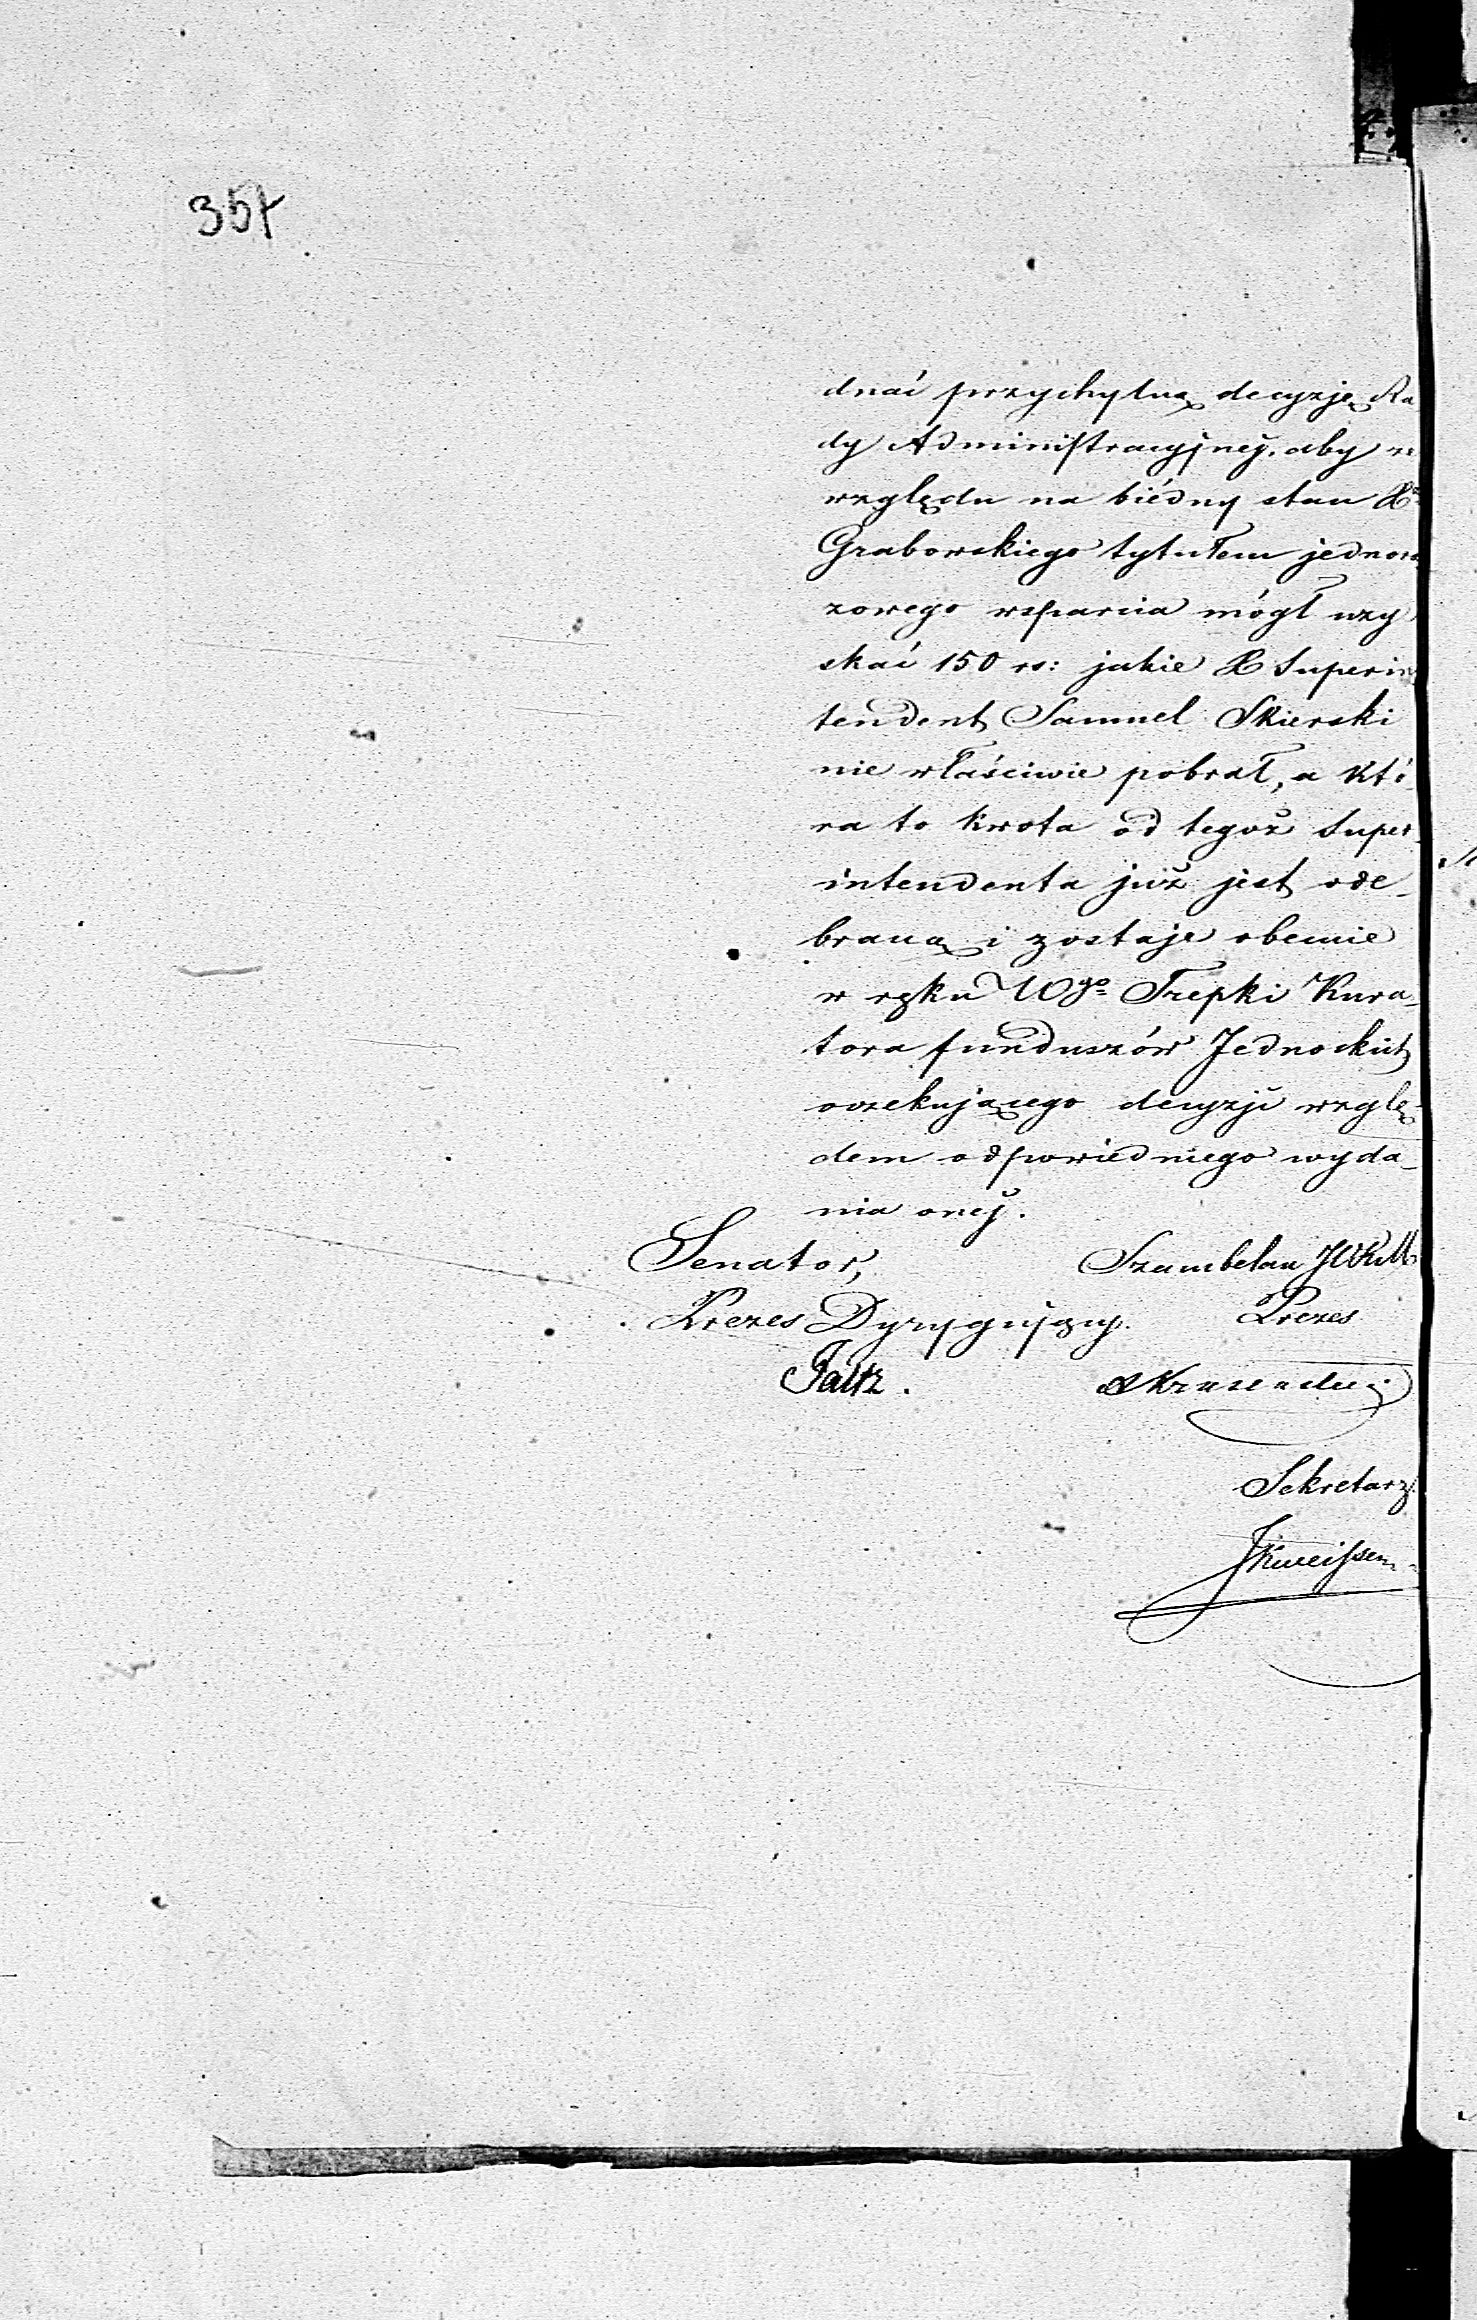 357
dnać przychylną decyzję Ra
dy Administracyjnej, aby ze
względu na biédny stan X
Grabowskiego tytułem jednora
zowego wsparcia mógł uzy
skać 150 rs: jakie X Superin
tendent Samuel Skierski
nie właściwie pobrał, a któ
ra to kwota od tegoż Super-
intendenta już jest ode-
braną i zostaje obecnie
w ręku Wgo Trepki Kura-
tora funduszów Jednockich
oczekującego decyzji wzglę-
dem odpowiedniego wyda-
nia onej.
Senator, Szambelan
Prezes Dyrygujący. Prezes
Faltz.
Sekretarz